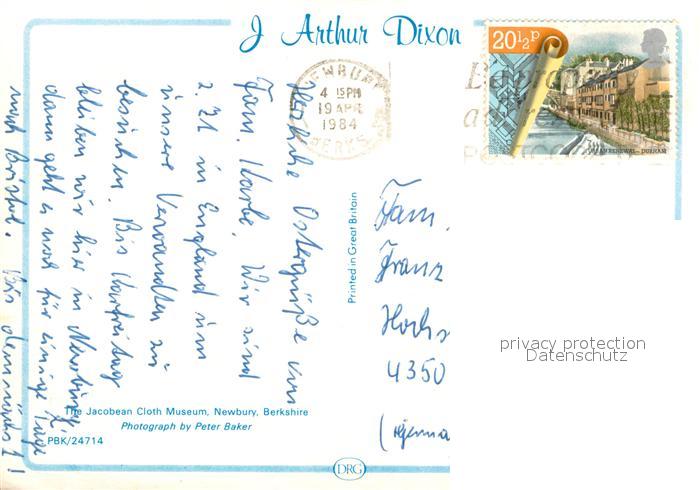 J Arthur Dixon
20½p
URBAN RENEWAL – DURHAM
NEWBURY
4 15PM
19 APR
1984
BERKS
Herzliche Ostergrüße von
Fam. Korbe. Wir sind
z. Zt in England um
unsere Verwandten zu
besuchen. Bis Karfreitag
bleiben wir hier in Newbury,
dann geht es noch für einige Tage
nach Bristol. Bis demnächst!
Printed in Great Britain
Fam.
Franz
4350
The Jacobean Cloth Museum, Newbury, Berkshire
Photograph by Peter Baker
PBK/24714
DRG
privacy protection
Datenschutz